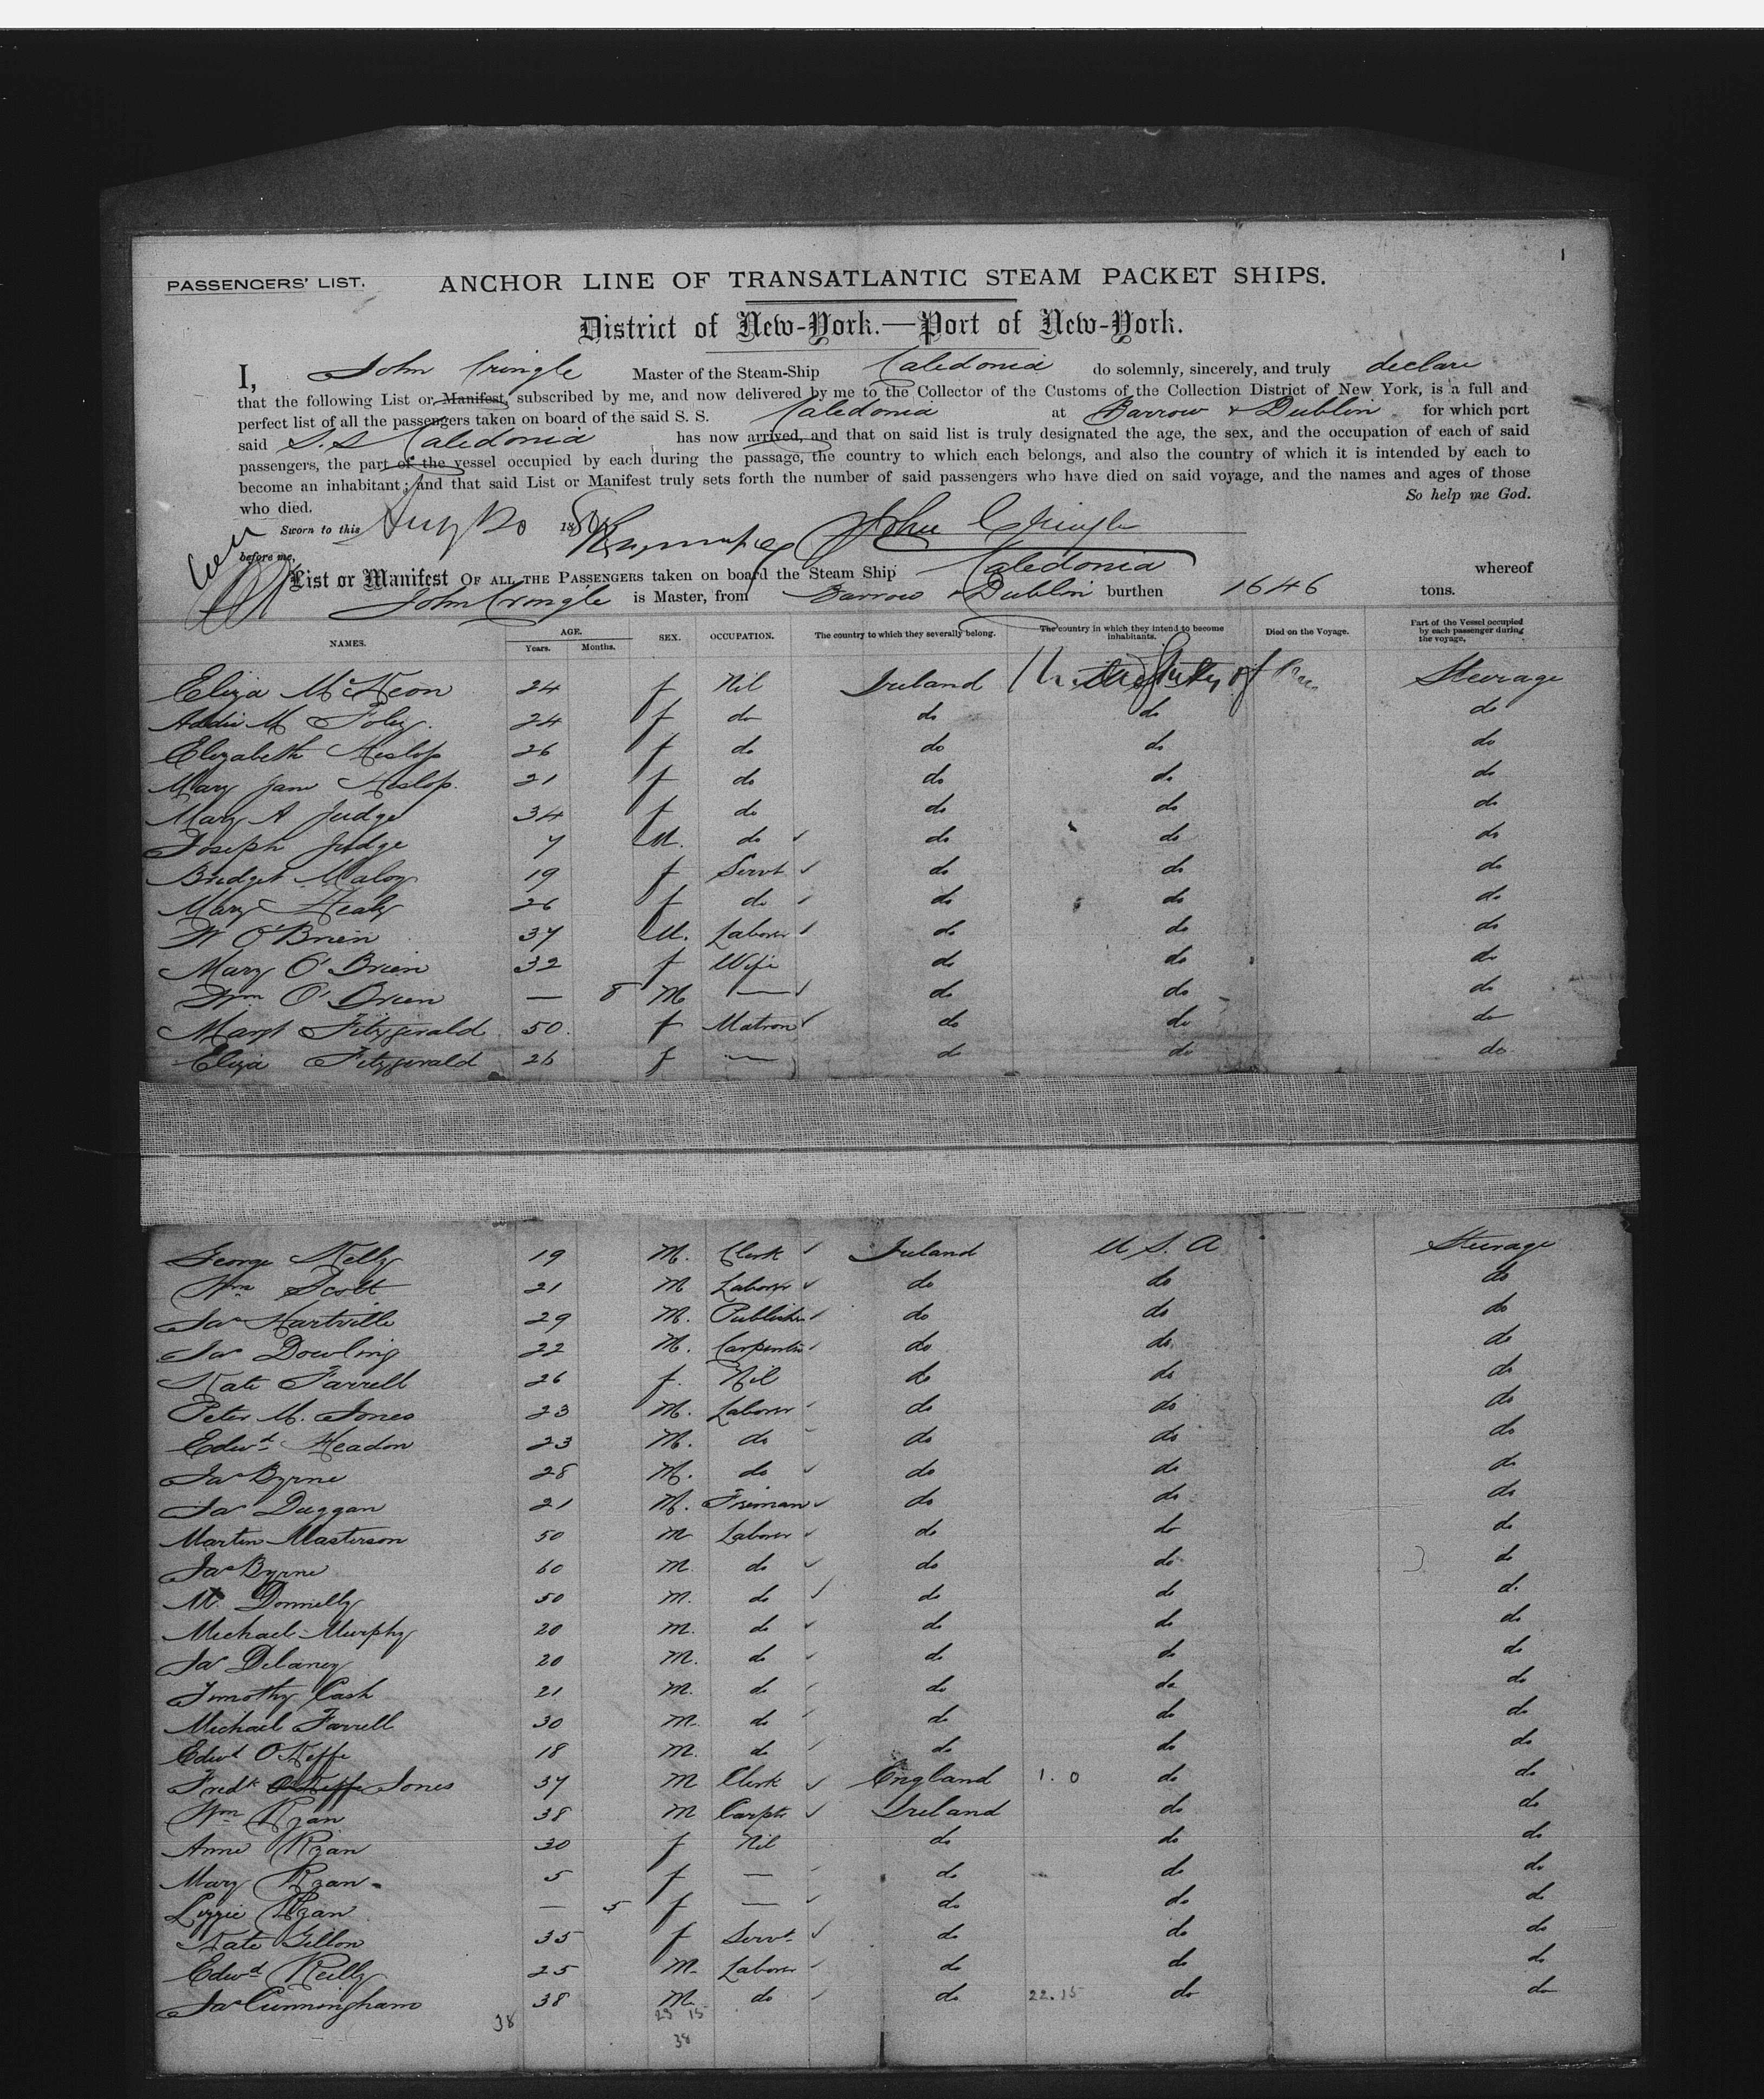 1
PASSENGERS' LIST. ANCHOR LINE OF TRANSATLANTIC STEAM PACKET SHIPS.
District of New-York.—Port of New-York.
I, John Cringle Master of the Steam-Ship Caledonia do solemnly, sincerely, and truly declare
that the following List or Manifest, subscribed by me, and now delivered by me to the Collector of the Customs of the Collection District of New York, is a full and
perfect list of all the passengers taken on board of the said S. S. Caledonia at Barrow & Dublin for which port
said S.S Caledonia has now arrived, and that on said list is truly designated the age, the sex, and the occupation of each of said
passengers, the part of the vessel occupied by each during the passage, the country to which each belongs, and also the country of which it is intended by each to
become an inhabitant; and that said List or Manifest truly sets forth the number of said passengers who have died on said voyage, and the names and ages of those
who died. So help me God.
Sworn to this Aug 20 18 John Cringle
before me,
List or Manifest OF ALL THE PASSENGERS taken on board the Steam Ship Caledonia whereof
John Cringle is Master, from Barrow & Dublin burthen 1646 tons.
NAMES. AGE. Years. Months. SEX. OCCUPATION. The country to which they severally belong. The country in which they intend to become inhabitants. Died on the Voyage. Part of the Vessel occupied by each passenger during the voyage.
Eliza McKeon 24 f Nil Ireland United States of Steerage
Addie M Foley 24 f do do do do
Elizabeth Heslop 26 f do do do do
Mary Jane Heslop. 21 f do do do do
Mary A Judge 34 f do do do do
Joseph Judge 7 M. do do do do
Bridget Maloy 19 f Servt do do do
Mary Healy 26 f do do do do
W O'Brien 37 M. Laborer do do do
Mary O'Brien 32 f Wife do do do
Wm O'Brien — 8 M — do do do
Margt Fitzgerald 50. f Matron do do do
Eliza Fitzgerald 26 f — do do do
George Kelly 19 M. Clerk Ireland U S. A Steerage
Wm Scott 21 M Laborer do do do
Jas Hartville 29 M. Publisher do do do
Jas Dowling 22 M. Carpenter do do do
Kate Farrell 26 f. Nil do do do
Peter M. Jones 23 M. Laborer do do do
Edwd Headon 23 M. do do do do
Jas Byrne 28 M. do do do do
Jas Duggan 21 M. Fireman do do do
Martin Masterson 50 M Laborer do do do
Jas Byrne 60 M. do do do do
M. Donnelly 50 M. do do do do
Michael Murphy 20 M. do do do do
Jas Delaney 20 M. do do do do
Timothy Cash 21 M. do do do do
Michael Farrell 30 M. do do do do
Edwd O'Keffe 18 M. do do do do
Fredk O'Keffe Jones 37 M Clerk England 1. 0 do do
Wm Ryan 38 M Carptr Ireland do do
Anne Ryan 30 f Nil do do do
Mary Ryan 5 f — do do do
Lizzie Ryan — 5 f — do do do
Kate Gillon 35 f Servt. do do do
Edwd Reilly 25 M. Laborer do do do
Jas Cunningham 38 M. do do 22.15 do do
38 23 15
38